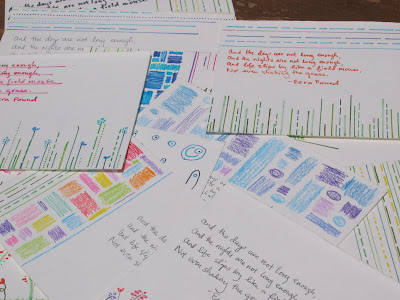 And the days are not long enough,
And the nights are
And the days are not long enough,
And the nights are not long enough,
And life slips by like a field mouse,
Not even shaking the grass.
-Ezra Pound
enough,
long enough,
a field mouse
grass.
Ezra Pound
And the da
And the ni
And life slip
Not even s
And the days are not long enough,
And the nights are not long enough,
And life slips by like a
Not even shaking the